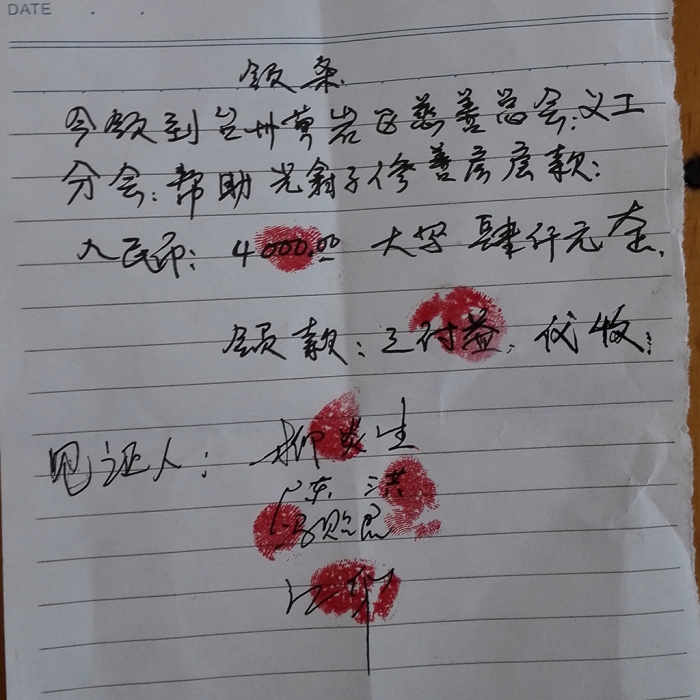 DATE . .
领条
今领到台州黄岩区慈善总会:义工
分会:帮助 子修善房屋款:
人民币: 4000.00 大写 肆仟元
领款: 王 益. 代收:
见证人: 柳 生
陈 洪
江